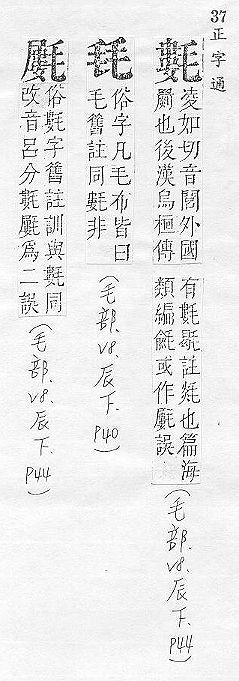 37
正字通
氀
凌如切音閭外國
罽也後漢烏桓傳
有氀毼註也篇海
類編或作誤
(毛部.V8.辰下.P44)
俗字凡毛布皆曰
毛舊註同氀非
(毛部.V8.辰下.P40)
俗氀字舊註訓與氀同
改音呂分氀為二誤
(毛部.V8.辰下.P44)